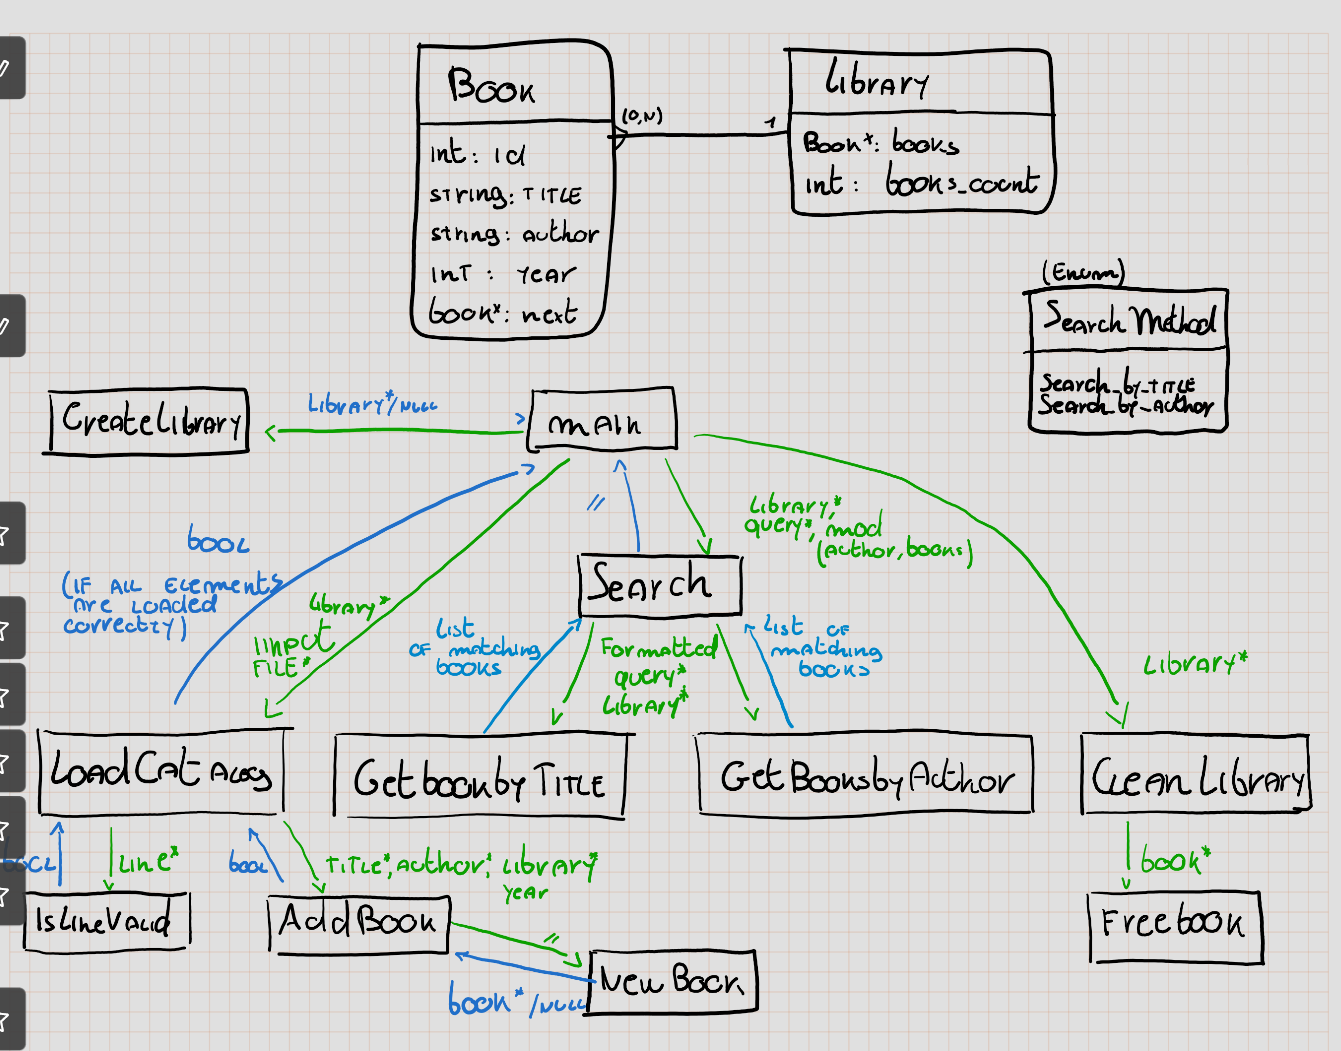 Book
int: id
string: TITLE
string: author
INT : year
book*: next
(0,N)
1
Library
Book*: books
int: books_count
(Enum)
Search Method
Search_by_TITLE
Search_by_Author
CreateLibrary
Library*/NULL
main
bool
(IF ALL ELements
are Loaded
correctly)
Library*
Iinput
FILE*
//
Library*,
query*, mod
(author, books)
Search
List
of matching
books
Formatted
query*
Library*
List of
matching
books
Library*
LoadCatalog
GetbookbyTITLE
GetBooksbyAuthor
CleanLibrary
bool
Line*
bool
TITLE*, author*, Library*
year
book*
IsLineValid
AddBook
//
Freebook
book*/NULL
NewBook